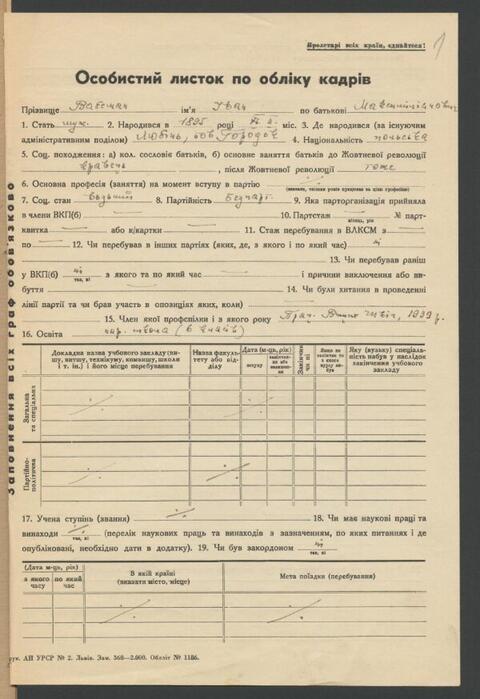 Пролетарі всіх країн, єднайтеся!
1
Особистий листок по обліку кадрів
Прізвище ім'я Іван по батькові
1. Стать муж. 2. Народився в 1895 році міс. 3. Де народився (за існуючим
адміністративним поділом) Любінь, обв. Городок 4. Національність польська
5. Соц. походження: а) кол. сословіє батьків, б) основне заняття батьків до Жовтневої революції
кравець, після Жовтневої революції тоже
6. Основна професія (заняття) на момент вступу в партію —
7. Соц. стан 8. Партійність Безпарт. 9. Яка парторганізація прийняла
в члени ВКП(б) — 10. Партстаж — № парт-
місяць, рік
квитка — або к/картки — 11. Стаж перебування в ВЛКСМ з —
по — 12. Чи перебував в інших партіях (яких, де, з якого і по який час) ні
13. Чи перебував раніш
у ВКП(б) ні з якого та по який час — і причини виключення або ви-
так, ні
буття — 14. Чи були хитання в проведенні
лінії партії та чи брав участь в опозиціях яких, коли) —
15. Член якої профспілки і з якого року 1939 р.
16. Освіта нар. школа (6 класів)
Докладна назва учбового закладу (ви-
шу, втишу, технікуму, комвишу, школи
і т. ін.) і його місце перебування
Назва факуль-
тету або від-
ділу
Дата (м-ць, рік)
вступу
закінчен-
ня або
вибуття
Закінчив
чи ні
Яку (вузьку) спеціаль-
ність набув у наслідок
закінчення учбового
закладу
Загальна
та спеціальна
Партійно-
політична
17. Учена ступінь (звання) 18. Чи має наукові праці та
винаходи (перелік наукових праць та винаходів з зазначенням, по яких питаннях і де
так, ні
опубліковані, необхідно дати в додатку). 19. Чи був закордоном ні
так, ні
(Дата м-ць, рік)
з якого
часу
по який
час
В якій країні
(вказати місто, місце)
Мета поїздки (перебування)
рук. АН УРСР № 2. Львів. Зам. 368—2.000. Обліліт № 1186.
Заповнення всіх граф обов'язково